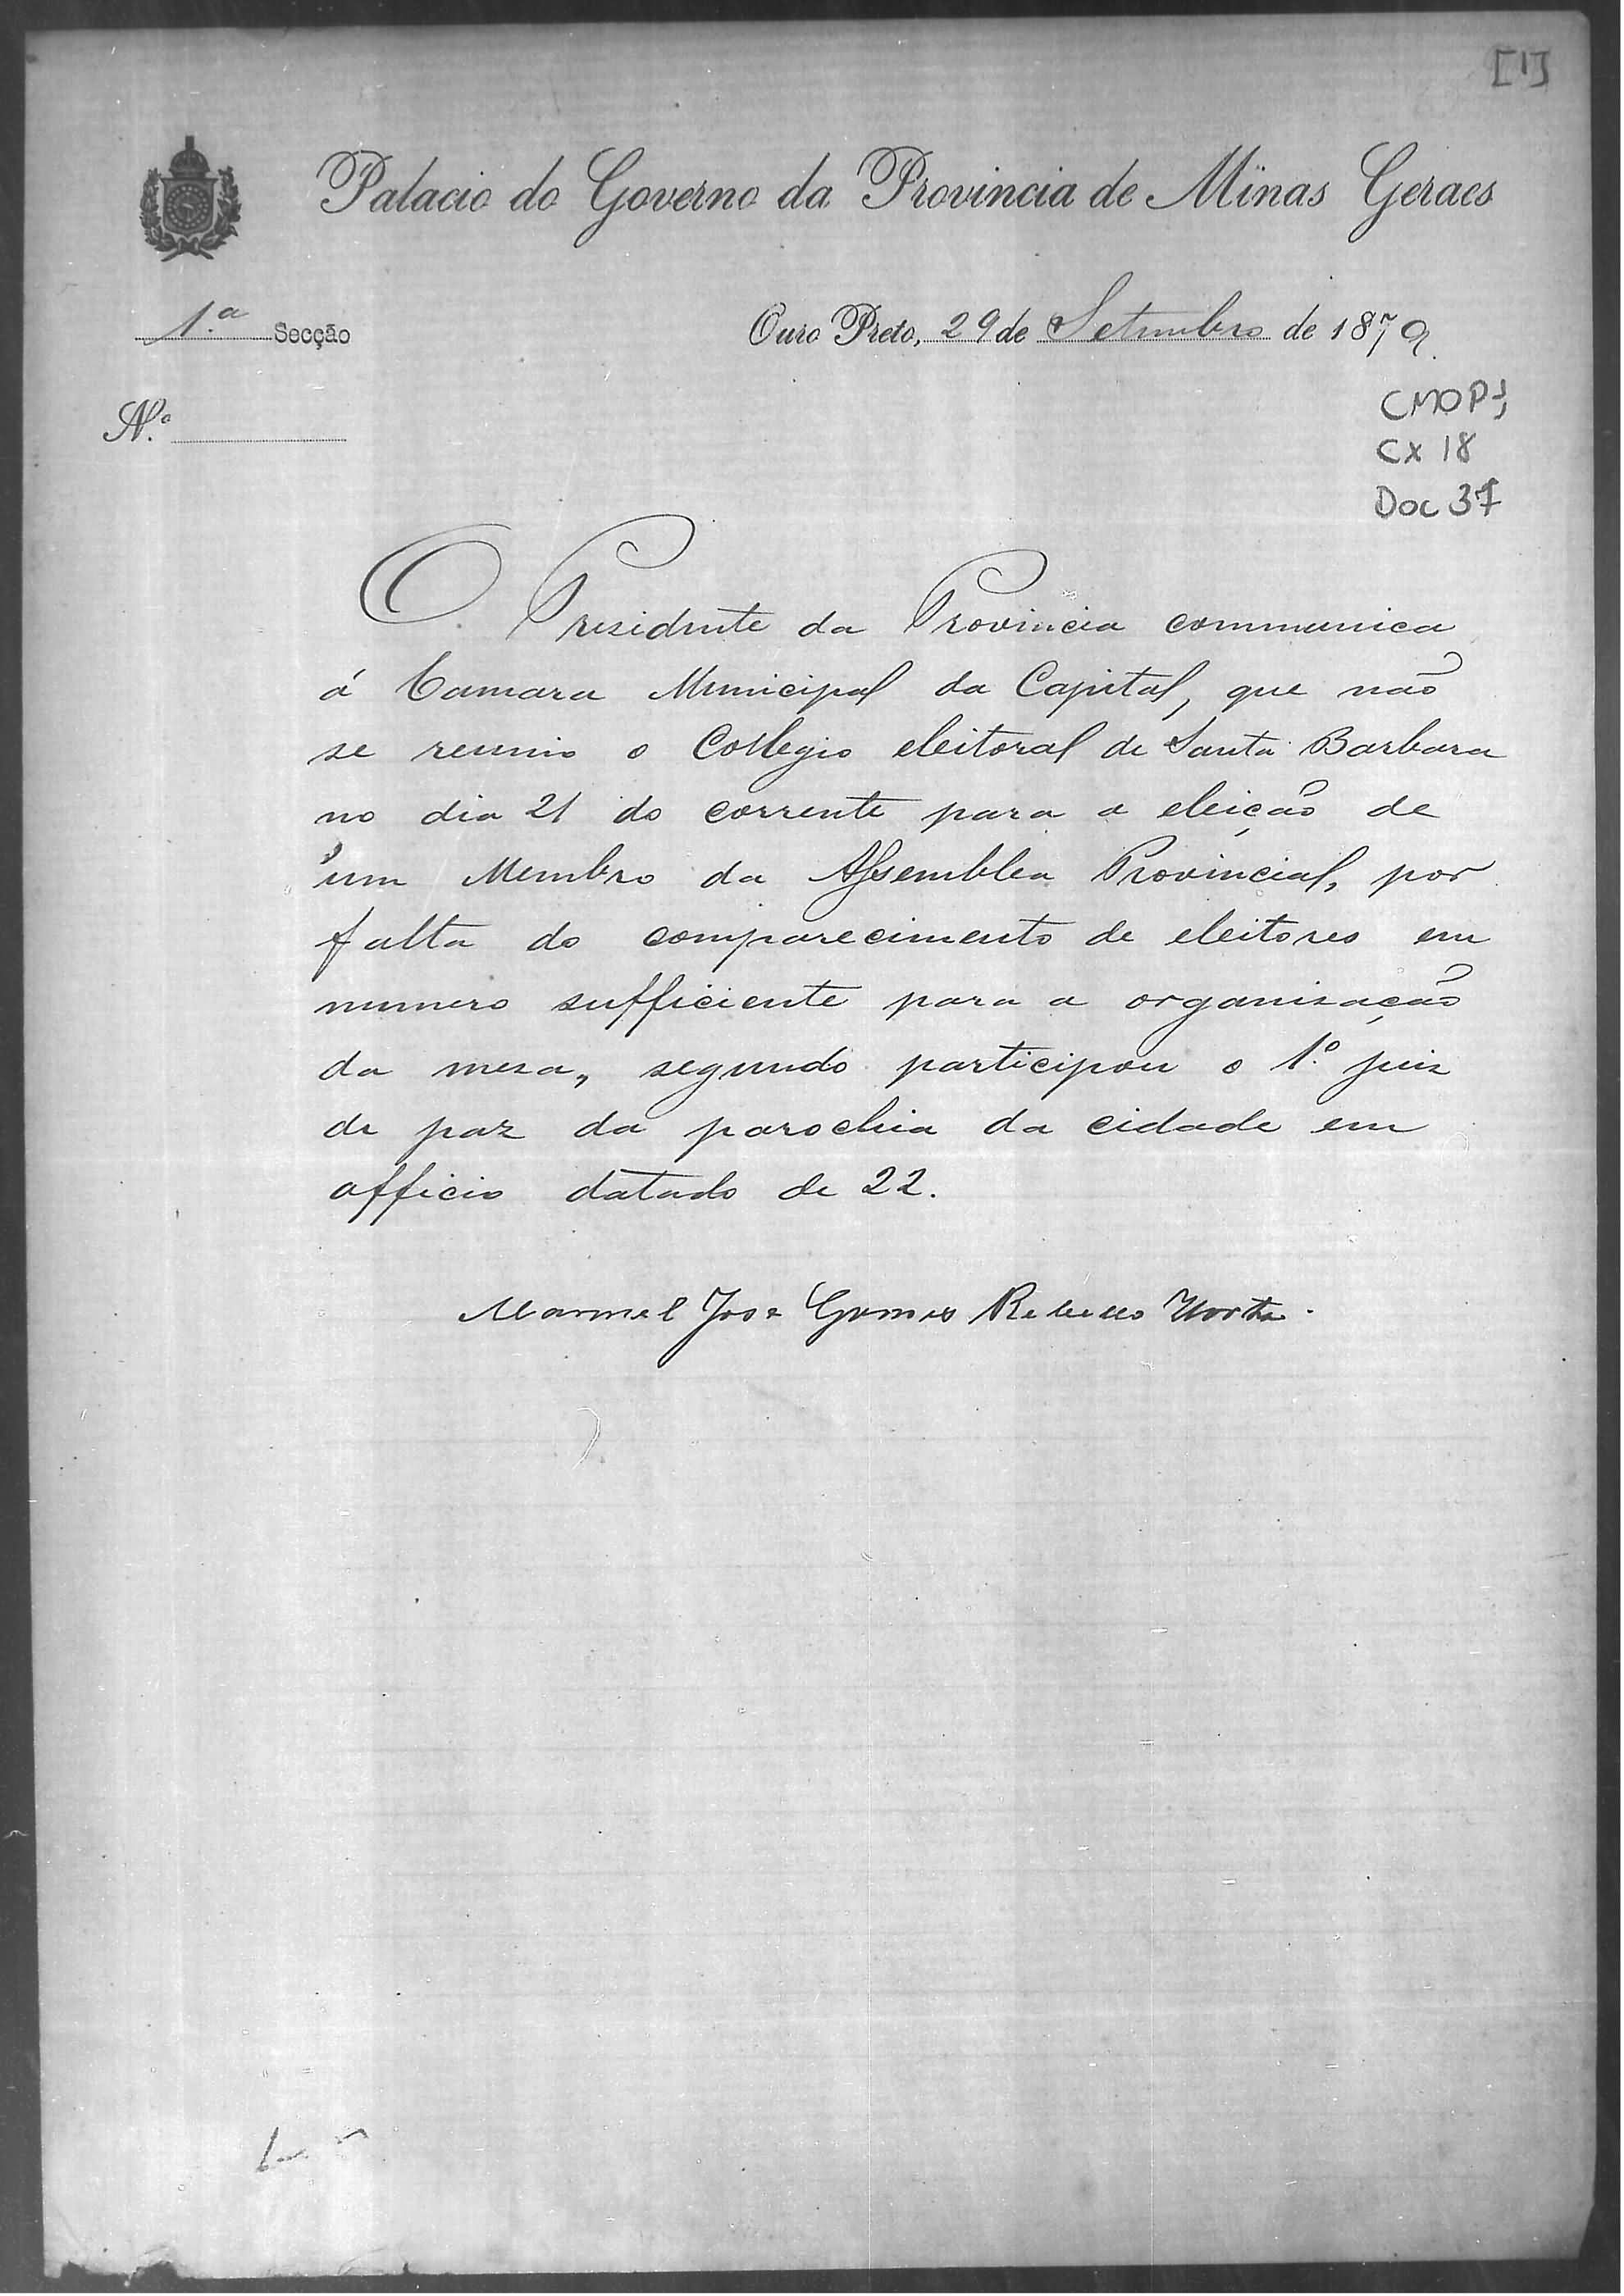 [1]
Palacio do Governo da Provincia de Minas Geraes
1.ª Secção
Ouro Preto, 29 de Setembro de 1879.
N.º
CMOP
Cx 18
Doc 37
O Presidente da Provincia communica
á Camara Municipal da Capital, que não
se reunio o Collegio eleitoral de Santa Barbara
no dia 21 do corrente para a eleição de
um Membro da Assemblea Provincial, por
falta do comparecimento de eleitores em
numero sufficiente para a organisação
da mesa, segundo participou o 1.º juiz
de paz da parochia da cidade em
officio datado de 22.
Manoel José Gomes Rebello Horta.